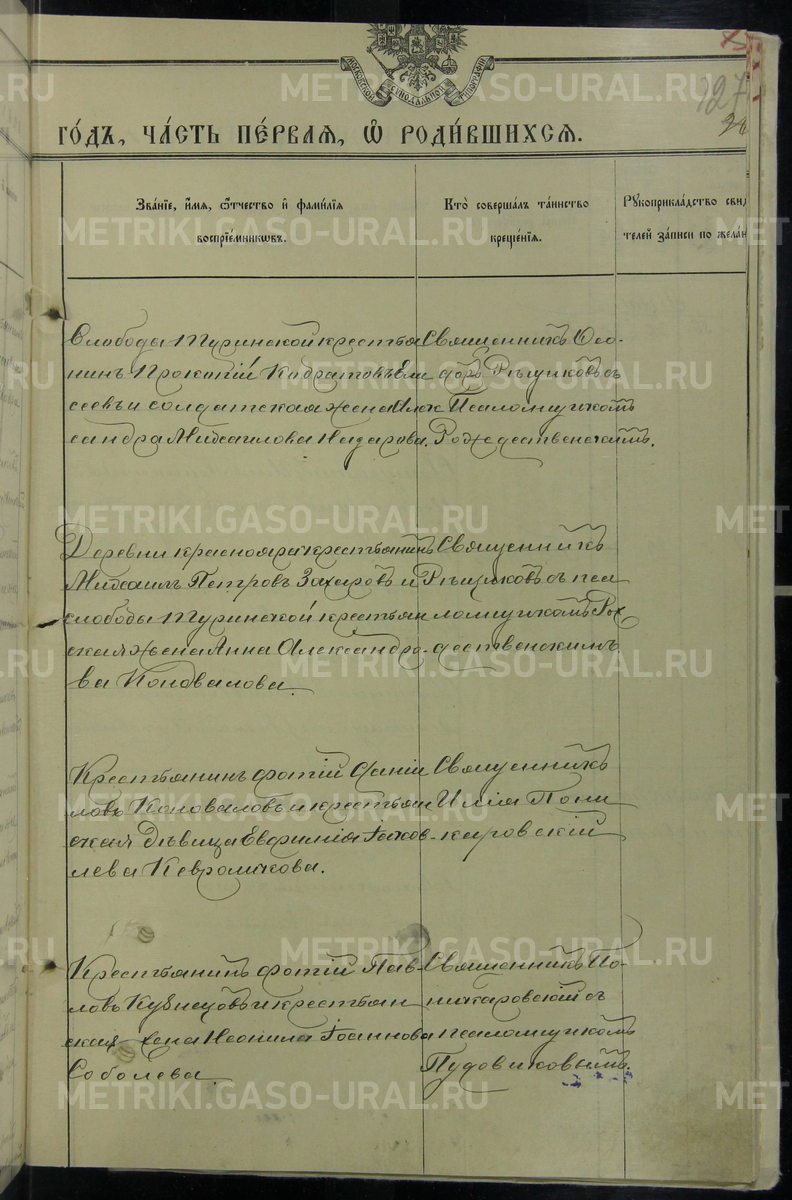 МОСКОВСКОЙ СѴНОДАЛЬНОЙ ТИПОГРАФІИ
127
го́дъ, ча́сть пе́рвая, ѡ҆ роди́вшихся.
Зва́нїе, и҆́мя, ѻ҆́тчество и҆ фами́лїя
воспрїе́мникѡвъ.
Кто̀ соверша́лъ та́инство
креще́нїя.
Рꙋкоприкла́дство свид
телей за́писи по жела́н
Слободы Туринской крестья
нинъ Прокопій Ели
сеевъ и солдатская жена Алек
сандра Михаилова Назарова.
Священникъ Ѳео-
доръ Рѣшиковъ съ
Псаломщикомъ
Рождественскимъ.
Деревни красноярa крестьянинъ
Михаилъ Петровъ Захаровъ и
слободы Туринской крестьян
ская жена Анна Александро-
ва Коновалова.
Священникъ
Рѣшиковъ съ пса
ломщикомъ Рож
дественскимъ
Крестьянинъ Фотій Даніи
ловъ Коноваловъ и крестьян
ская дѣвица Евфимія Іаков-
лева Кевролиткова.
Священникъ
Илія Пони
каровскій
Крестьянинъ Фотій Пав-
ловъ Кузнецовъ и крестьян
ская жена Неонила Іоаннова
Соболева.
Священникъ По-
никаровскій съ
псаломщикомъ
Пудовиковымъ.
METRIKI.GASO-URAL.RU